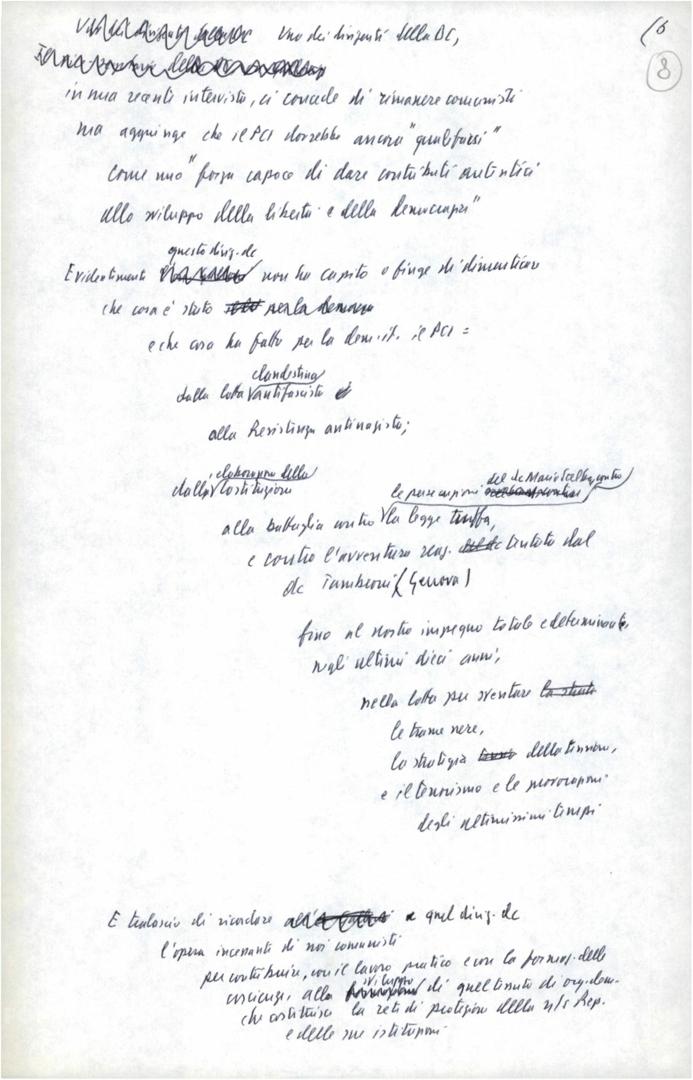 16
8
Uno dei dirigenti della DC,
in una recente intervista, ci concede di rimanere comunisti
ma aggiunge che il PCI dovrebbe ancora "qualificarsi"
come una "forza capace di dare contributi autentici
allo sviluppo della libertà e della democrazia"
questo dirig. dc
Evidentemente non ha capito o finge di dimenticare
che cosa è stato per la democrazia
e che cosa ha fatto per la dem. it. il PCI =
clandestina
dalla lotta antifascista
alla Resistenza antinazista;
elaborazione della
dalla Costituzione
le persecuzioni del dc Mario Scelba, contro
alla battaglia contro la legge truffa,
e contro l'avventura reaz. tentata dal
dc Tambroni (Genova)
fino al nostro impegno totale e determinante,
negli ultimi dieci anni,
nella lotta per sventare
le trame nere,
la strategia della tensione,
e il terrorismo e le provocazioni
degli ultimissimi tempi
E tralascio di ricordare a quel dirig. dc
l'opera incessante di noi comunisti
per contribuire, con il lavoro pratico e con la formaz. delle
sviluppo
coscienze, alla di quel tessuto di org. dem.
che costituisce la rete di protezione della n/s Rep.
e delle sue istituzioni